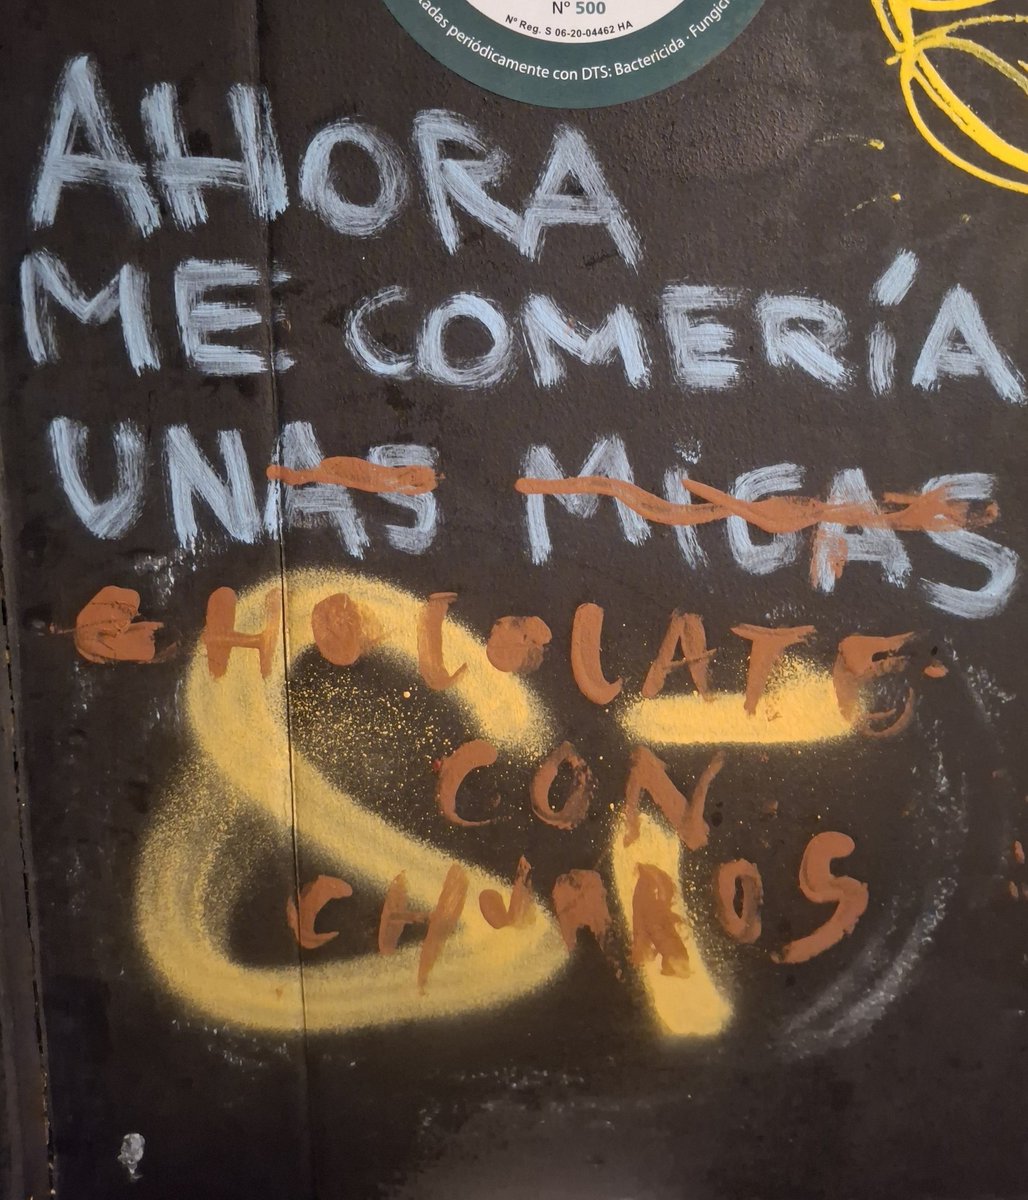 Nº 500
Nº Reg. S 06-20-04462 HA
tadas periódicamente con DTS: Bactericida · Fungici
AHORA
ME COMERÍA
UNAS MIGAS
CHOCOLATE
CON
CHURROS
ST